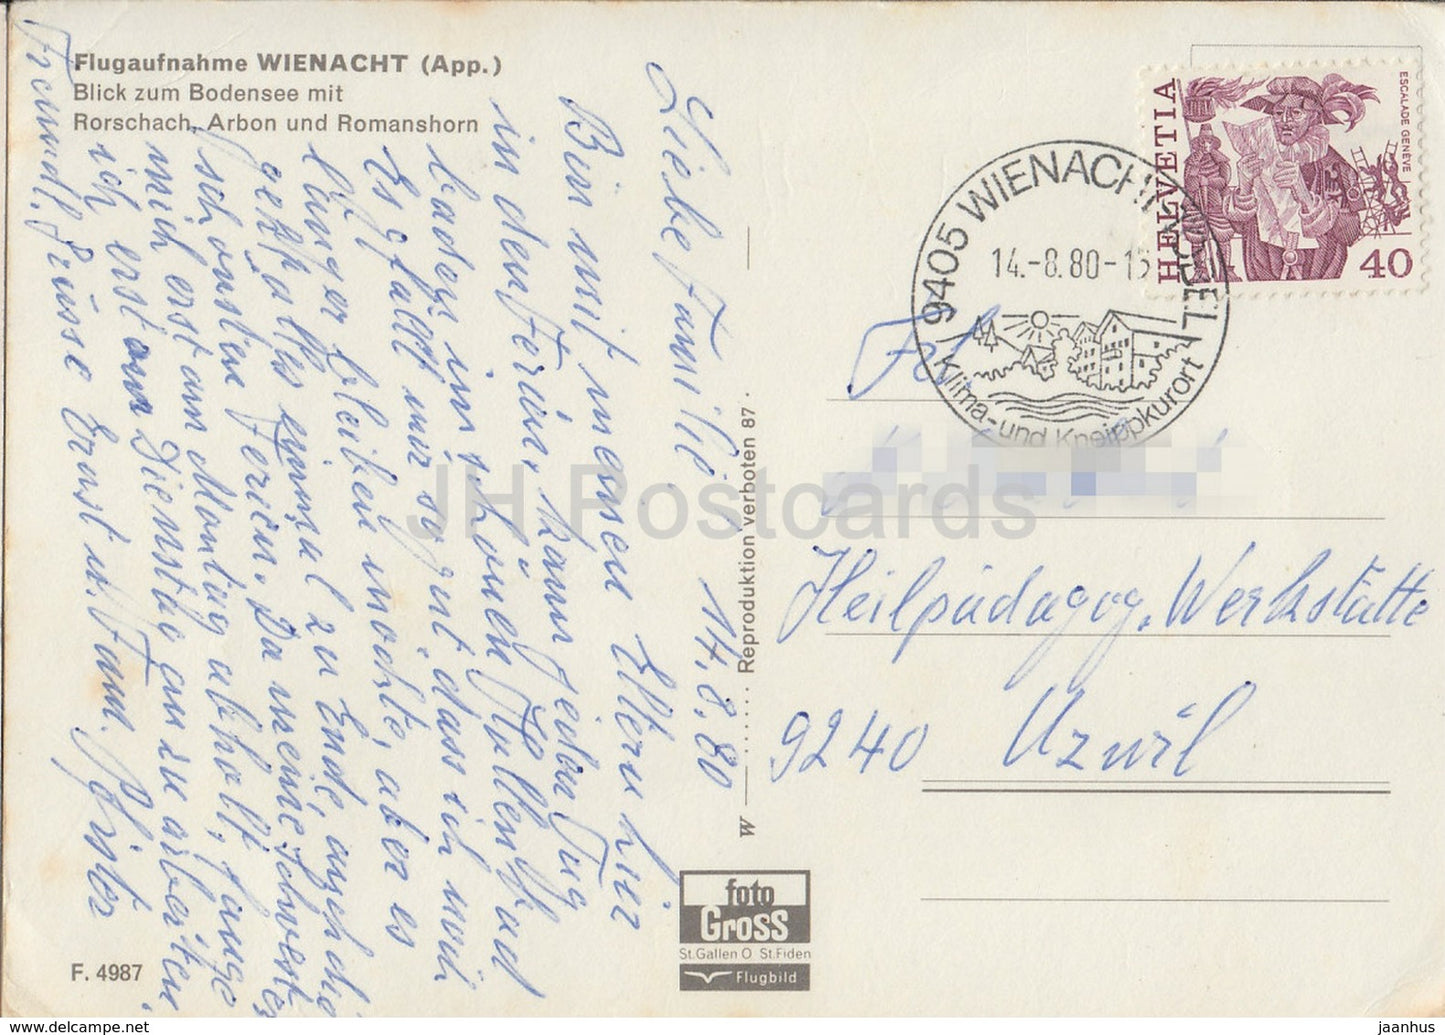 Flugaufnahme WIENACHT (App.)
Blick zum Bodensee mit
Rorschach, Arbon und Romanshorn
Liebe Familie 14.8.80
Bin mit meinen Eltern hier
in den Ferien, kann jeden Tag
baden im schönen Hallenbad
Es gfallt mir so gut, dass ich noch
länger bleiben möchte, aber es
geht alles einmal zu Ende, auch die
schönsten Ferien. Da meine Schwester
mich erst am Montag abholt, fange
ich erst am Dienstag an zu arbeiten
Freundl. Grüsse Ernst u. Fam.
F. 4987
W ...... Reproduktion verboten 87.
foto
Gross
St.Gallen O St.Fiden
Flugbild
9405 WIENACHT-TOBEL
14.-8.80-15
Klima- und Kneippkurort
HELVETIA
ESCALADE GENÈVE
40
Heilpädagog. Werkstätte
9240 Uzwil
JH Postcards
www.delcampe.net
jaanhus